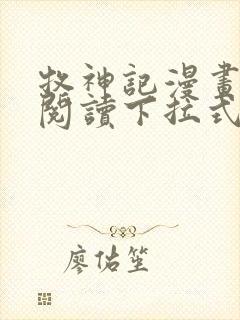 牧神記漫畫
閱讀下拉式
廖佑笙